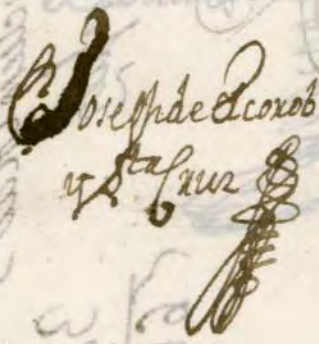 Joseph de Escorob
y Sta Cruz